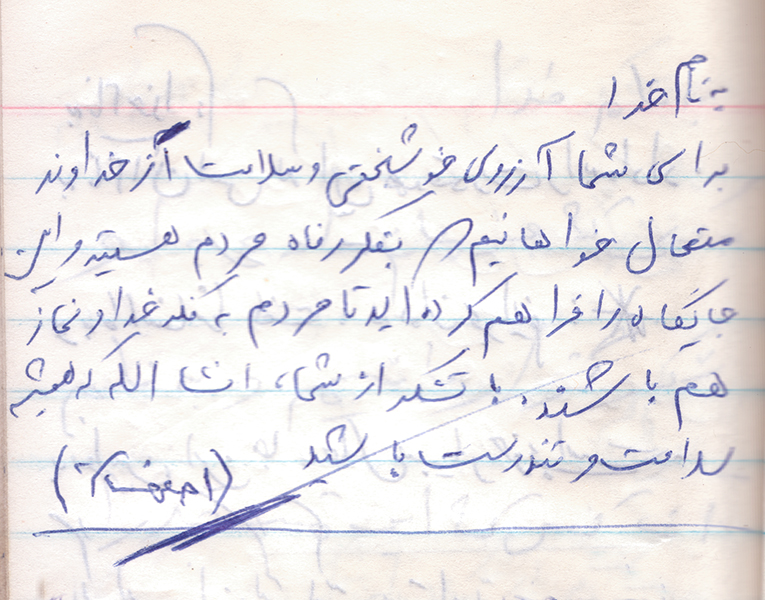 بنام خدا
برای شما آرزوی خوشبختی و سلامت از خداوند
متعال خواهانیم بفکر رفاه مردم هستید و این
جایگاه را فراهم کرده اید تا مردم به فکر خدا و نماز
هم باشند. با تشکر از شما، انشا الله که همیشه
سلامت و تندرست باشید